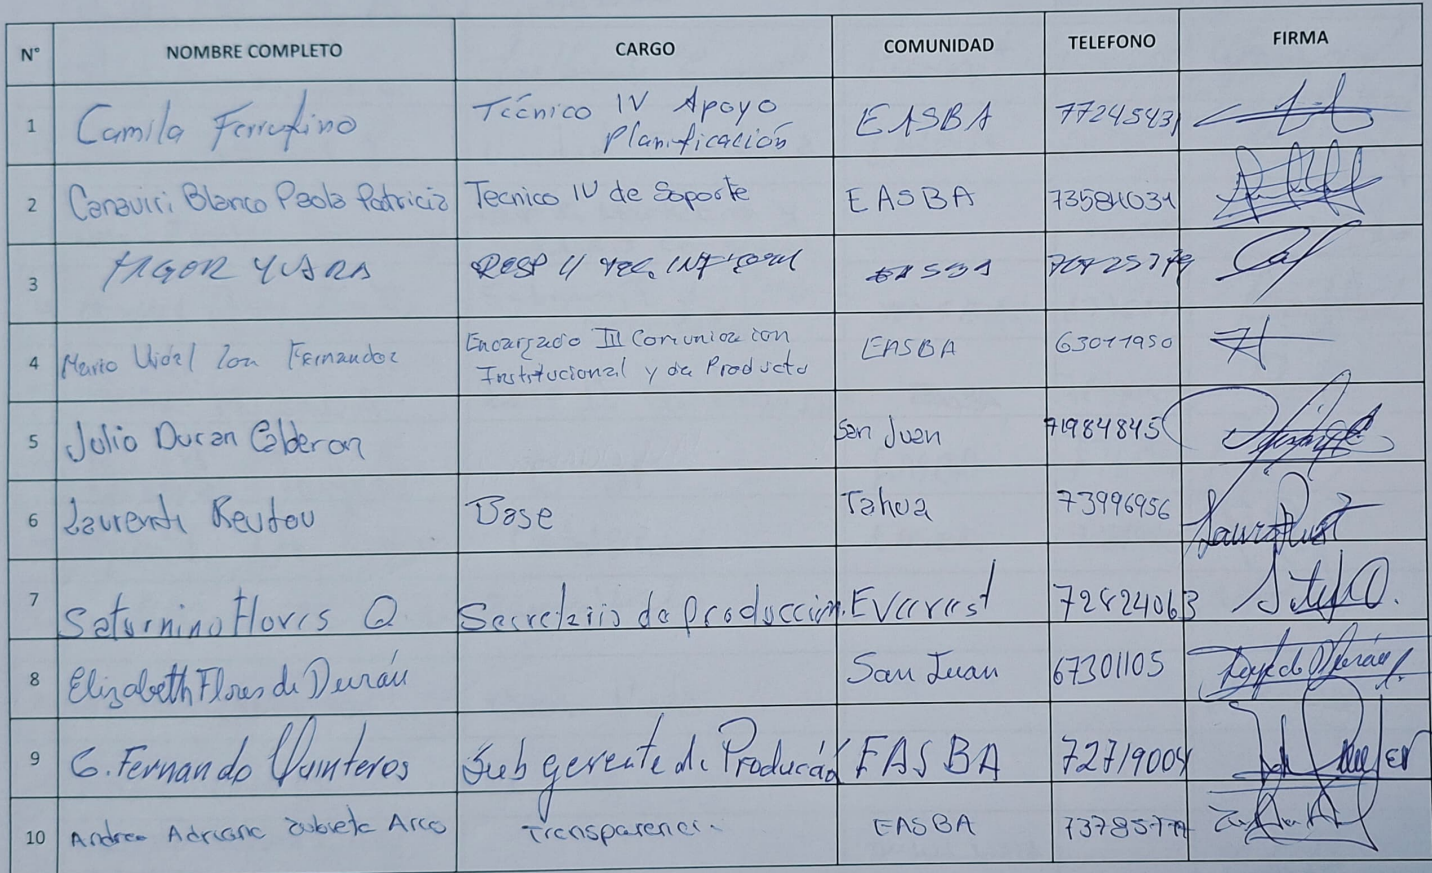 N° NOMBRE COMPLETO CARGO COMUNIDAD TELEFONO FIRMA
1 Camila Ferrufino Técnico IV Apoyo Planificación EASBA 77245431
2 Canaviri Blanco Paola Patricia Tecnico IV de Soporte EASBA 73584031
3 YUJRA RESP II TEC. EASBA
4 Mario Vidal Fernandez Encargado III Comunicacion Institucional y de Producto EASBA 63011950
5 Julio Duran Calderon San Juan 71984845
6 Base Tahua 73996956
7 Saturnino Flores Q. Secretario de Producción. Everest 72424063
8 Elizabeth Flores de Durán San Juan 67301105
9 G. Fernando Quinteros Sub gerente de Producción EASBA 72719004
10 Andrea Adriana Zubieta Arce Transparencia EASBA